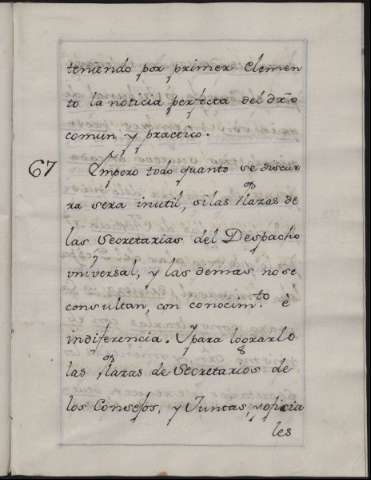 teniendo por primer Elemen
to la noticia perfecta del dr̃o
comun y practico.
67 Emporo todo quanto se discur
ra sera inutil, si las Plazas de
las Secretarias del Despacho
universal, y las demas no se
consultan, con conocim.to è
indiferencia. Y para lograrlo
las Plazas de Secretarios de
los Consejos, y Juntas, y oficia
les